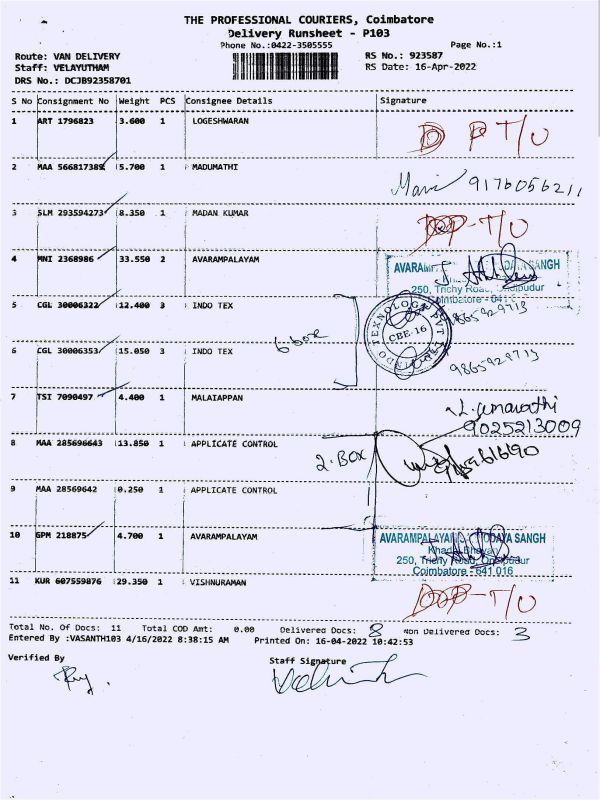 THE PROFESSIONAL COURIERS, Coimbatore
Delivery Runsheet - P103
Phone No.:0422-3505555
Page No.:1
Route: VAN DELIVERY
RS No.: 923587
Staff: VELAYUTHAM
RS Date: 16-Apr-2022
DRS No.: DCJB92358701
S No Consignment No Weight PCS Consignee Details Signature
1 ART 1796823 3.600 1 LOGESHWARAN
T/U
2 MAA 566817389 5.700 1 MADUMATHI
9176056211
3 SLM 293594273 8.350 1 MADAN KUMAR
T/U
4 MNI 2368986 33.550 2 AVARAMPALAYAM
250, Trichy Road,
Coimbatore - 641
5 CGL 30006322 12.400 3 INDO TEX
6 box
INDO TEXNOLOGY PVT
CBE-16
9865929713
6 CGL 30006353 15.050 3 INDO TEX
9865929713
7 TSI 7090497 4.400 1 MALAIAPPAN
9025213009
8 MAA 285696643 13.850 1 APPLICATE CONTROL
2-BOX
9 MAA 28569642 0.250 1 APPLICATE CONTROL
10 GPM 218875 4.700 1 AVARAMPALAYAM
AVARAMPALAYAM SARVODAYA SANGH
Khadi Bhavan
250, Trichy Road, Ondipudur
Coimbatore - 641 016
11 KUR 607559876 29.350 1 VISHNURAMAN
T/U
Total No. Of Docs: 11 Total COD Amt: 0.00 Delivered Docs: 8 Non Delivered Docs: 3
Entered By :VASANTH103 4/16/2022 8:38:15 AM Printed On: 16-04-2022 10:42:53
Verified By
Staff Signature